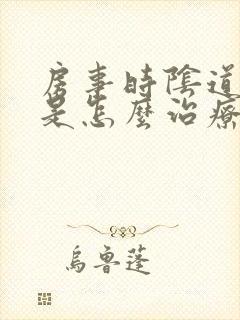 房事時陰道
是怎麼治療
烏魯蓬